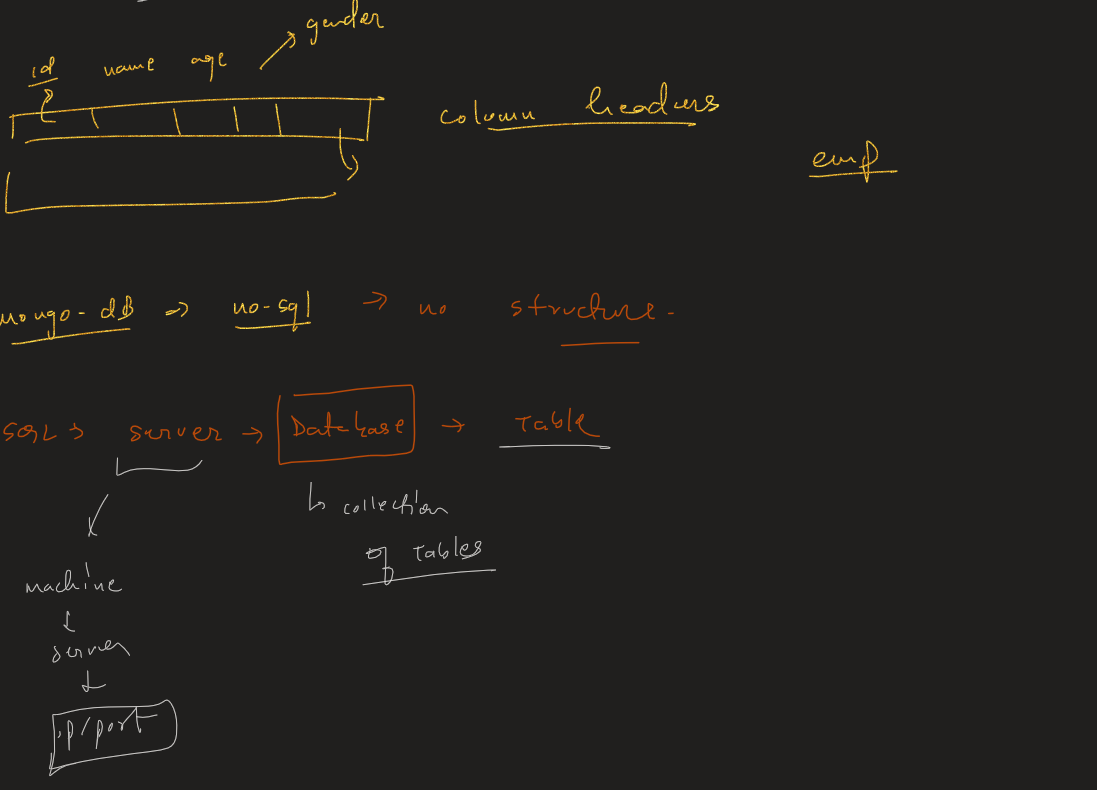 gender
id name age
column headers
emp
mongo-dB => no-sql → no structure.
SQL → server → Database → Table
↳ collection
of Tables
machine
↓
server
↓
ip/port